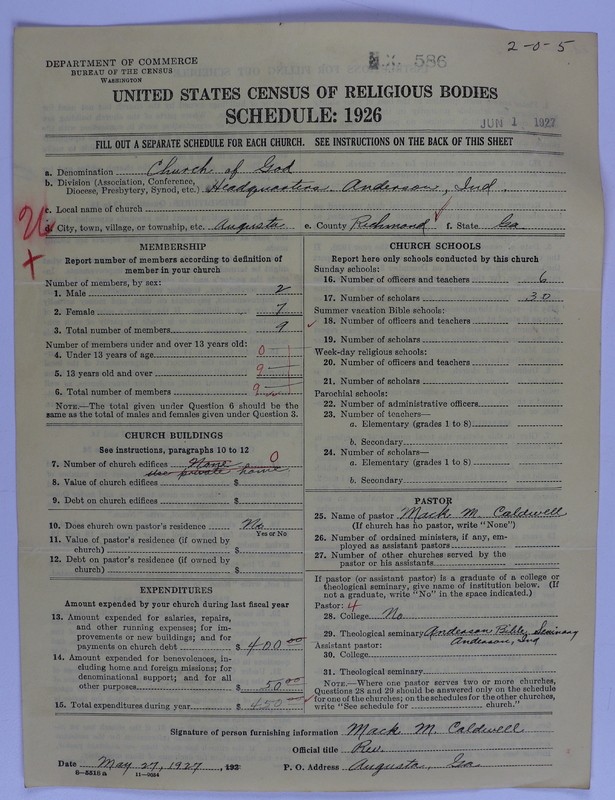 2-0-5
DEPARTMENT OF COMMERCE
BUREAU OF THE CENSUS
WASHINGTON
586
UNITED STATES CENSUS OF RELIGIOUS BODIES
SCHEDULE: 1926
JUN 1 1927
FILL OUT A SEPARATE SCHEDULE FOR EACH CHURCH. SEE INSTRUCTIONS ON THE BACK OF THIS SHEET
a. Denomination Church of God
b. Division (Association, Conference, Diocese, Presbytery, Synod, etc.) Headquarters. Anderson, Ind.
c. Local name of church
d. City, town, village, or township, etc. Augusta e. County Richmond f. State Ga.
MEMBERSHIP
Report number of members according to definition of
member in your church
Number of members, by sex:
1. Male 2
2. Female 7
3. Total number of members 9
Number of members under and over 13 years old:
4. Under 13 years of age 0
5. 13 years old and over 9
6. Total number of members 9
NOTE.—The total given under Question 6 should be the
same as the total of males and females given under Question 3.
CHURCH BUILDINGS
See instructions, paragraphs 10 to 12
7. Number of church edifices None 0
use private home
8. Value of church edifices $
9. Debt on church edifices $
10. Does church own pastor's residence No
Yes or No
11. Value of pastor's residence (if owned by
church) $
12. Debt on pastor's residence (if owned by
church) $
EXPENDITURES
Amount expended by your church during last fiscal year
13. Amount expended for salaries, repairs,
and other running expenses; for im-
provements or new buildings; and for
payments on church debt $ 400 00
14. Amount expended for benevolences, in-
cluding home and foreign missions; for
denominational support; and for all
other purposes $ 50 00
15. Total expenditures during year $ 450 00
CHURCH SCHOOLS
Report here only schools conducted by this church
Sunday schools:
16. Number of officers and teachers 6
17. Number of scholars 30
Summer vacation Bible schools:
18. Number of officers and teachers
19. Number of scholars
Week-day religious schools:
20. Number of officers and teachers
21. Number of scholars
Parochial schools:
22. Number of administrative officers
23. Number of teachers—
a. Elementary (grades 1 to 8)
b. Secondary
24. Number of scholars—
a. Elementary (grades 1 to 8)
b. Secondary
PASTOR
25. Name of pastor Mack M. Caldwell
(If church has no pastor, write "None")
26. Number of ordained ministers, if any, em-
ployed as assistant pastors
27. Number of other churches served by the
pastor or his assistants
If pastor (or assistant pastor) is a graduate of a college or
theological seminary, give name of institution below. (If
not a graduate, write "No" in the space indicated.)
Pastor: 4
28. College No
29. Theological seminary Anderson Bible Seminary
Anderson, Ind
Assistant pastor:
30. College
31. Theological seminary
NOTE.—Where one pastor serves two or more churches,
Questions 28 and 29 should be answered only on the schedule
for one of the churches; on the schedules for the other churches,
write "See schedule for church."
Signature of person furnishing information Mack M. Caldwell
Official title Rev.
Date May 27, 1927, 192 P. O. Address Augusta, Ga.
8-5518a 11-9034